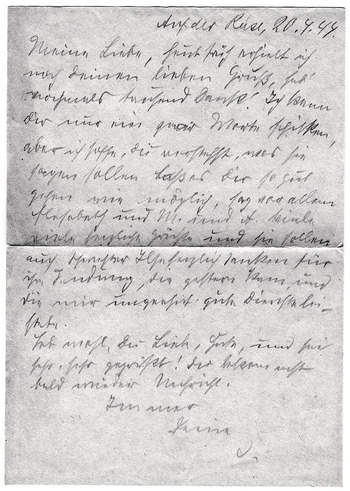 Auf der Reise, 20.4.44.
Meine Liebe, heut früh erhielt ich
noch deinen lieben Gruß, hab'
nochmals tausend Dank! Ich kann
dir nur ein paar Worte schicken,
aber ich hoffe, du verstehst, was sie
sagen sollen. Laß es dir so gut
gehen wie möglich, sag vor allem
Elisabeth und M. und A. viele
viele herzliche Grüße und sie sollen
auch Schwester Ilse herzlich danken für
ihre Sendung, die gestern kam und
die mir ungeheuer gute Dienste lei-
stete.
Leb wohl, du Liebe, Gute, und sei
sehr, sehr gegrüßt! du bekommst
bald wieder Nachricht.
Immer
Deine